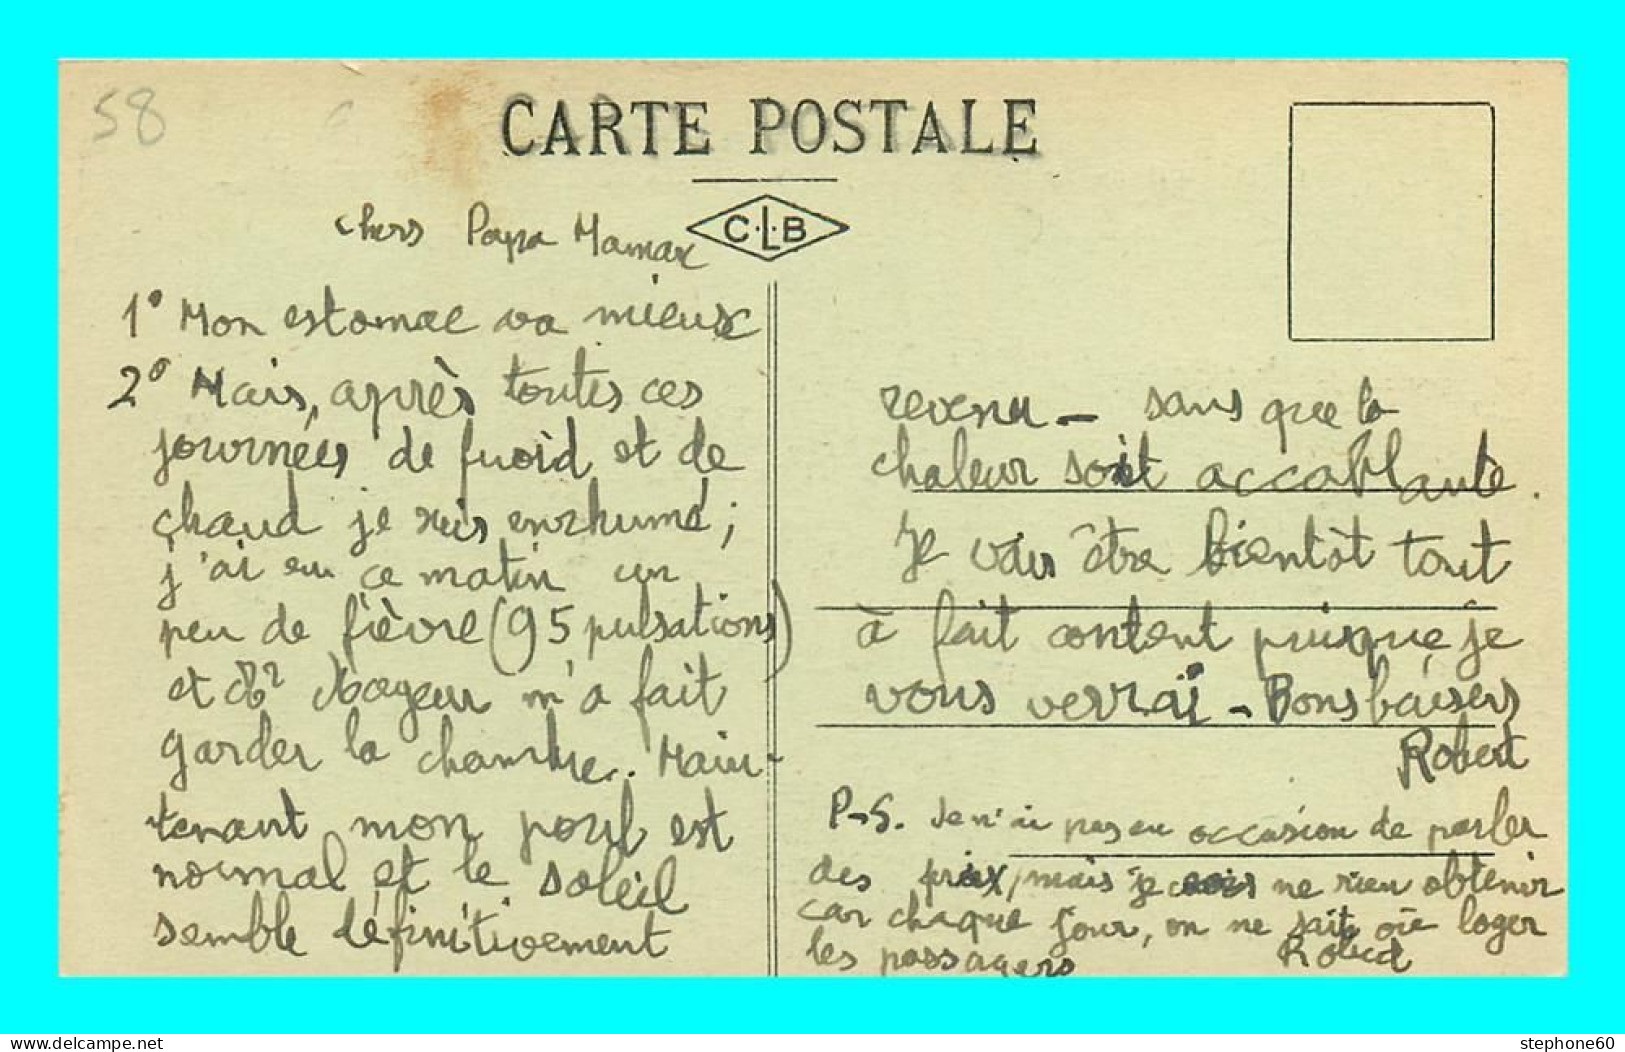 58
CARTE POSTALE
C.L.B
Chers Papa Maman
1° Mon estomac va mieux
2° Mais, après toutes ces
journées de froid et de
chaud je suis enrhumé ;
j'ai eu ce matin un
peu de fièvre (95 pulsations)
et Mr m'a fait
garder la chambre. Main-
tenant mon pouls est
normal et le soleil
semble définitivement
revenu - sans que la
chaleur soit accablante.
Je vais être bientôt tout
à fait content puisque je
vous verrai - Bons baisers
Robert
P-S. Je n'ai pas eu occasion de parler
des prix, mais je crois ne rien obtenir
car chaque jour, on ne sait où loger
les passagers Robert
delcampe.net
stephone60